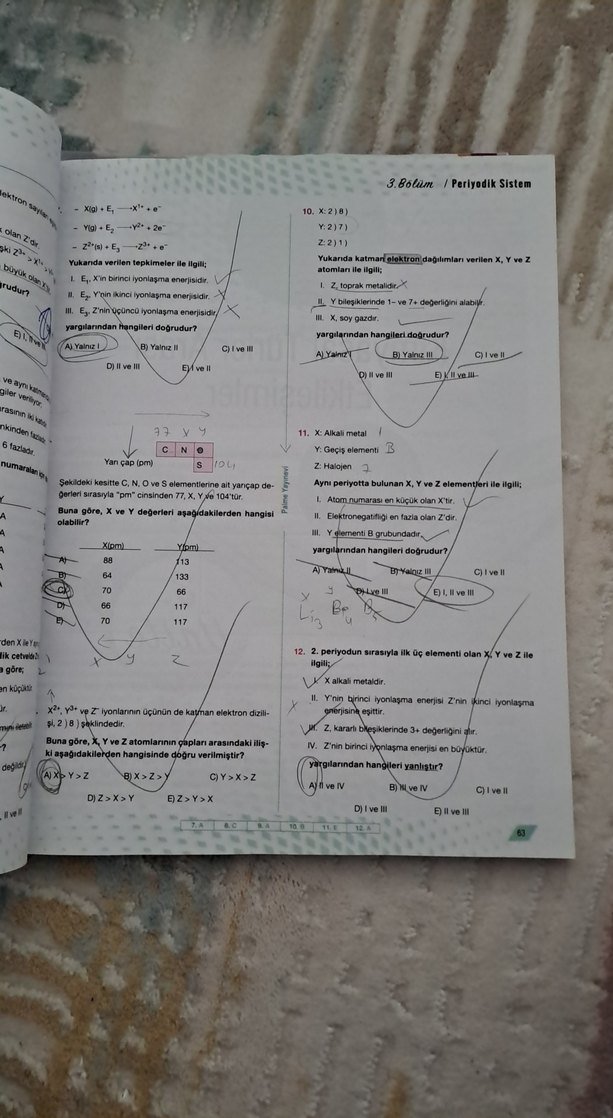 3.Bölüm / Periyodik Sistem
lektron sayıları
olan Z'dir.
ski Z³⁺ > X¹⁺
büyük olan
rudur?
E) I, II ve
ve aynı katman
giler veriliyor.
rasının iki katıdır
nkinden fazladır
6 fazladır.
numaraları için
A
A
A
A
A
rden X ile Y
dik cetvelde
a göre;
en küçüktür.
ür.
?
değildir.
II ve III
– X(g) + E₁ ⟶ X¹⁺ + e⁻
– Y(g) + E₂ ⟶ Y²⁺ + 2e⁻
– Z²⁺(s) + E₃ ⟶ Z³⁺ + e⁻
Yukarıda verilen tepkimeler ile ilgili;
I. E₁, X'in birinci iyonlaşma enerjisidir.
II. E₂, Y'nin ikinci iyonlaşma enerjisidir.
III. E₃, Z'nin üçüncü iyonlaşma enerjisidir.
yargılarından hangileri doğrudur?
A) Yalnız I B) Yalnız II C) I ve III
D) II ve III E) I ve II
77 X Y
C N O
S 104
Yarı çap (pm)
Şekildeki kesitte C, N, O ve S elementlerine ait yarıçap de-
ğerleri sırasıyla "pm" cinsinden 77, X, Y ve 104'tür.
Buna göre, X ve Y değerleri aşağıdakilerden hangisi
olabilir?
X(pm) Y(pm)
A) 88 113
B) 64 133
C) 70 66
D) 66 117
E) 70 117
X Y Z
X²⁺, Y³⁺ ve Z⁻ iyonlarının üçünün de katman elektron dizili-
şi, 2 ) 8 ) şeklindedir.
Buna göre, X, Y ve Z atomlarının çapları arasındaki iliş-
ki aşağıdakilerden hangisinde doğru verilmiştir?
A) X > Y > Z B) X > Z > Y C) Y > X > Z
D) Z > X > Y E) Z > Y > X
Palme Yayınevi
10. X: 2 ) 8 )
Y: 2 ) 7 )
Z: 2 ) 1 )
Yukarıda katman elektron dağılımları verilen X, Y ve Z
atomları ile ilgili;
I. Z, toprak metalidir.
II. Y bileşiklerinde 1– ve 7+ değerliğini alabilir.
III. X, soy gazdır.
yargılarından hangileri doğrudur?
A) Yalnız I B) Yalnız III C) I ve II
D) II ve III E) I, II ve III
11. X: Alkali metal 1
Y: Geçiş elementi B
Z: Halojen 7
Aynı periyotta bulunan X, Y ve Z elementleri ile ilgili;
I. Atom numarası en küçük olan X'tir.
II. Elektronegatifliği en fazla olan Z'dir.
III. Y elementi B grubundadır.
yargılarından hangileri doğrudur?
A) Yalnız II B) Yalnız III C) I ve II
D) I ve III E) I, II ve III
X Y
Li₃ Be₄ B₅
12. 2. periyodun sırasıyla ilk üç elementi olan X, Y ve Z ile
ilgili;
I. X alkali metaldir.
II. Y'nin birinci iyonlaşma enerjisi Z'nin ikinci iyonlaşma
enerjisine eşittir.
III. Z, kararlı bileşiklerinde 3+ değerliğini alır.
IV. Z'nin birinci iyonlaşma enerjisi en büyüktür.
yargılarından hangileri yanlıştır?
A) II ve IV B) III ve IV C) I ve II
D) I ve III E) II ve III
7. A 8. C 9. A 10. B 11. E 12. A
63